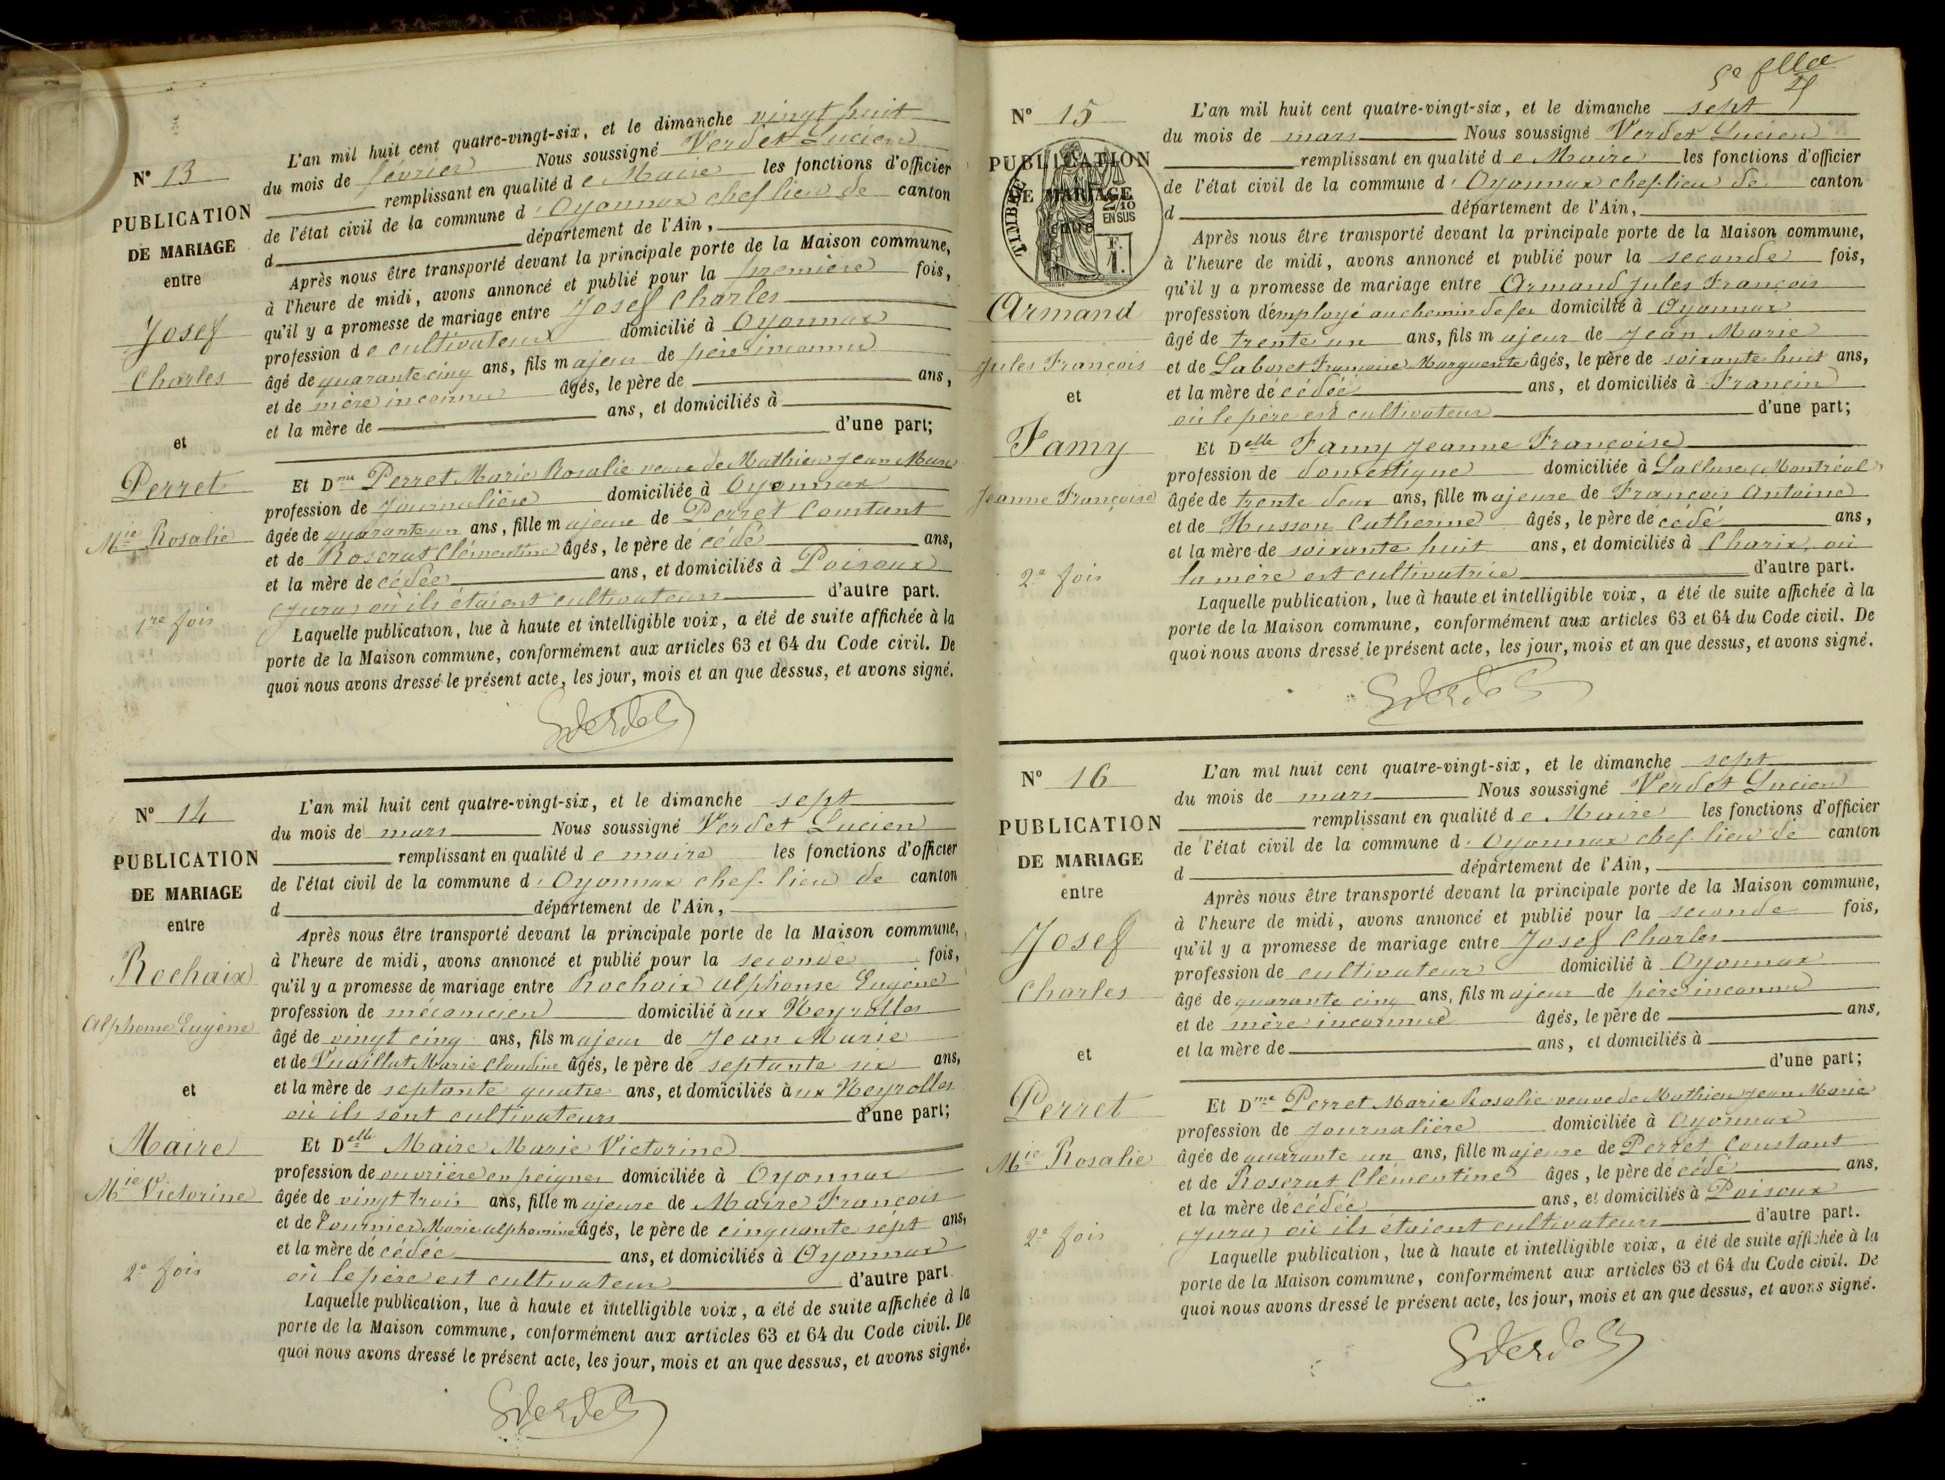 N° 13
PUBLICATION
DE MARIAGE
entre
Josef
Charles
et
Perret
Mie Rosalie
1re fois
L'an mil huit cent quatre-vingt-six, et le dimanche vingt huit
du mois de février Nous soussigné Verdet Lucien
remplissant en qualité de Maire les fonctions d'officier
de l'état civil de la commune d'Oyonnax chef lieu de canton
d département de l'Ain,
Après nous être transporté devant la principale porte de la Maison commune,
à l'heure de midi, avons annoncé et publié pour la première fois,
qu'il y a promesse de mariage entre Josef Charles
profession de cultivateur domicilié à Oyonnax
âgé de quarante cinq ans, fils majeur de père inconnu
et de mère inconnue âgés, le père de ans,
et la mère de ans, et domiciliés à
d'une part;
Et Dme Perret Marie Rosalie veuve de Mathieu Jean Marie
profession de Journalière domiciliée à Oyonnax
âgée de quarante un ans, fille majeure de Perret Constant
et de Roserat Clémentine âgés, le père de cédé ans,
et la mère de cédée ans, et domiciliés à Poisoux
(Jura) où ils étaient cultivateurs d'autre part.
Laquelle publication, lue à haute et intelligible voix, a été de suite affichée à la
porte de la Maison commune, conformément aux articles 63 et 64 du Code civil. De
quoi nous avons dressé le présent acte, les jour, mois et an que dessus, et avons signé.
N° 14
PUBLICATION
DE MARIAGE
entre
Rochaix
Alphonse Eugène
et
Maire
Mie Victorine
2e fois
L'an mil huit cent quatre-vingt-six, et le dimanche sept
du mois de mars Nous soussigné Verdet Lucien
remplissant en qualité de maire les fonctions d'officier
de l'état civil de la commune d'Oyonnax chef-lieu de canton
d département de l'Ain,
Après nous être transporté devant la principale porte de la Maison commune,
à l'heure de midi, avons annoncé et publié pour la seconde fois,
qu'il y a promesse de mariage entre Rochaix Alphonse Eugène
profession de mécanicien domicilié aux Neyrolles
âgé de vingt cinq ans, fils majeur de Jean Marie
et de Vuaillat Marie Claudine âgés, le père de septante six ans,
et la mère de septante quatre ans, et domiciliés aux Neyrolles
où ils sont cultivateurs d'une part;
Et Delle Maire Marie Victorine
profession de ouvrière en peignes domiciliée à Oyonnax
âgée de vingt trois ans, fille majeure de Maire François
et de Tournier Marie Alphonsine âgés, le père de cinquante sept ans,
et la mère de cédée ans, et domiciliés à Oyonnax
où le père est cultivateur d'autre part.
Laquelle publication, lue à haute et intelligible voix, a été de suite affichée à la
porte de la Maison commune, conformément aux articles 63 et 64 du Code civil. De
quoi nous avons dressé le présent acte, les jour, mois et an que dessus, et avons signé.
N° 15
PUBLICATION
DE MARIAGE
entre
TIMBRE
2/10
EN SUS
F.
1.
Armand
Jules François
et
Famy
Jeanne Françoise
2e fois
L'an mil huit cent quatre-vingt-six, et le dimanche sept
du mois de mars Nous soussigné Verdet Lucien
remplissant en qualité de Maire les fonctions d'officier
de l'état civil de la commune d'Oyonnax chef-lieu de canton
d département de l'Ain,
Après nous être transporté devant la principale porte de la Maison commune,
à l'heure de midi, avons annoncé et publié pour la seconde fois,
qu'il y a promesse de mariage entre Armand Jules François
profession d'employé au chemin de fer domicilié à Oyonnax
âgé de trente un ans, fils majeur de Jean Marie
et de Laboret Françoise Marguerite âgés, le père de soixante huit ans,
et la mère de cédée ans, et domiciliés à Francin
où le père est cultivateur d'une part;
Et Delle Famy Jeanne Françoise
profession de domestique domiciliée à Lacluse (Montréal)
âgée de trente deux ans, fille majeure de François Antoine
et de Husson Catherine âgés, le père de cédé ans,
et la mère de soixante huit ans, et domiciliés à Charix, où
la mère est cultivatrice d'autre part.
Laquelle publication, lue à haute et intelligible voix, a été de suite affichée à la
porte de la Maison commune, conformément aux articles 63 et 64 du Code civil. De
quoi nous avons dressé le présent acte, les jour, mois et an que dessus, et avons signé.
N° 16
PUBLICATION
DE MARIAGE
entre
Josef
Charles
et
Perret
Mie Rosalie
2e fois
L'an mil huit cent quatre-vingt-six, et le dimanche sept
du mois de mars Nous soussigné Verdet Lucien
remplissant en qualité de Maire les fonctions d'officier
de l'état civil de la commune d'Oyonnax chef-lieu de canton
d département de l'Ain,
Après nous être transporté devant la principale porte de la Maison commune,
à l'heure de midi, avons annoncé et publié pour la seconde fois,
qu'il y a promesse de mariage entre Josef Charles
profession de cultivateur domicilié à Oyonnax
âgé de quarante cinq ans, fils majeur de père inconnu
et de mère inconnue âgés, le père de ans,
et la mère de ans, et domiciliés à
d'une part;
Et Dme Perret Marie Rosalie veuve de Mathieu Jean Marie
profession de Journalière domiciliée à Oyonnax
âgée de quarante un ans, fille majeure de Perret Constant
et de Roserat Clémentine âgés, le père de cédé ans,
et la mère de cédée ans, et domiciliés à Poisoux
(Jura) où ils étaient cultivateurs d'autre part.
Laquelle publication, lue à haute et intelligible voix, a été de suite affichée à la
porte de la Maison commune, conformément aux articles 63 et 64 du Code civil. De
quoi nous avons dressé le présent acte, les jour, mois et an que dessus, et avons signé.